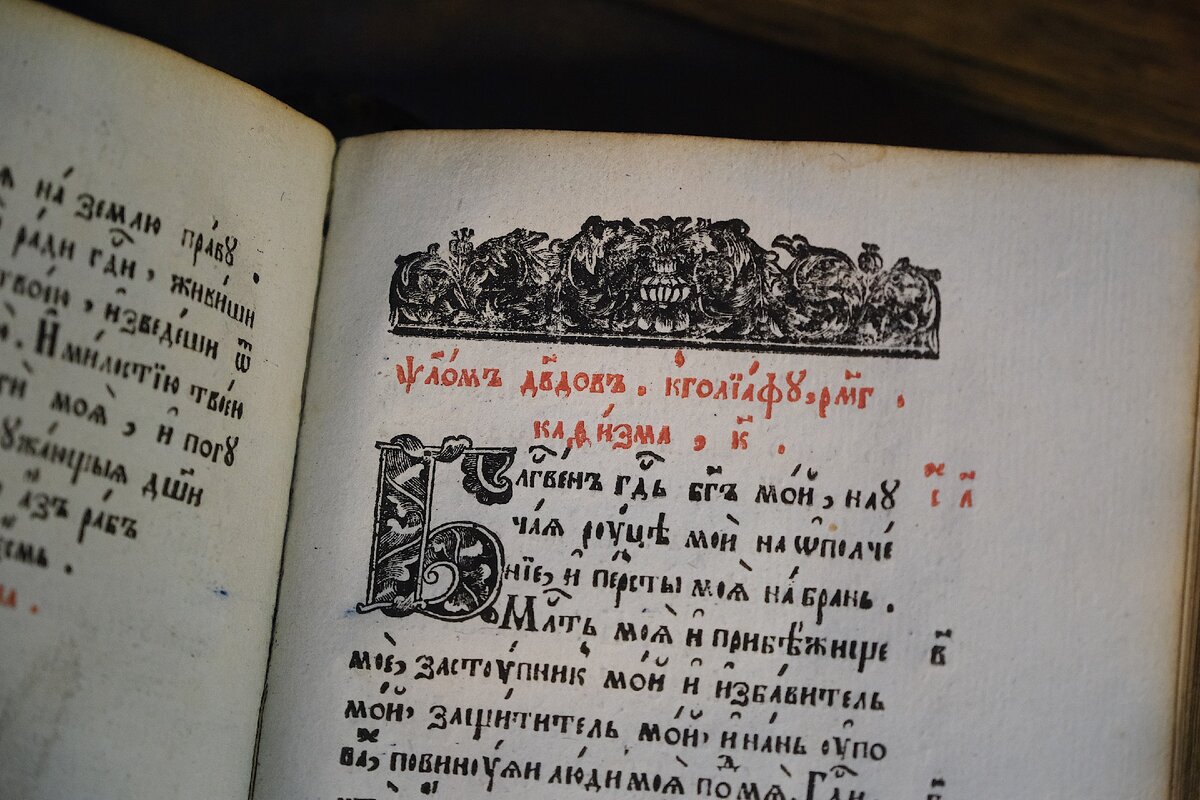 на́ землю пра́вꙋ .
ра́ди гдⷭ҇и , живи́ши
твою̀ , и҆зведе́ши ѿ
И҆ ми́лостїю твое́ю
моѧ̀ , и҆ погꙋ
дш҃и
а҆́зъ ра́бъ
ѱл҃о́мъ дв҃довъ . к̾голїа́фꙋ , рм҃г .
каѳи́зма , к҃ .
Блгⷭ҇ве́нъ гдⷭ҇ь бг҃ъ мо́й , наꙋ
ча́ѧ рꙋ́цѣ моѝ на ѡ҆полче́
нїе , и҆ пе́рсты моѧ̀ на́ брань .
Млⷭ҇ть моѧ̀ и҆ прибѣ́жище в҃
моѐ , застꙋ́пник̾ мо́й и҆ и҆зба́витель
мо́й , защи́титель мо́й , и҆ на́нь ᲂу҆по
ва́хъ , повинꙋ́ѧй люди моѧ̀ по́д мѧ̀ . Гдⷭ҇и ,